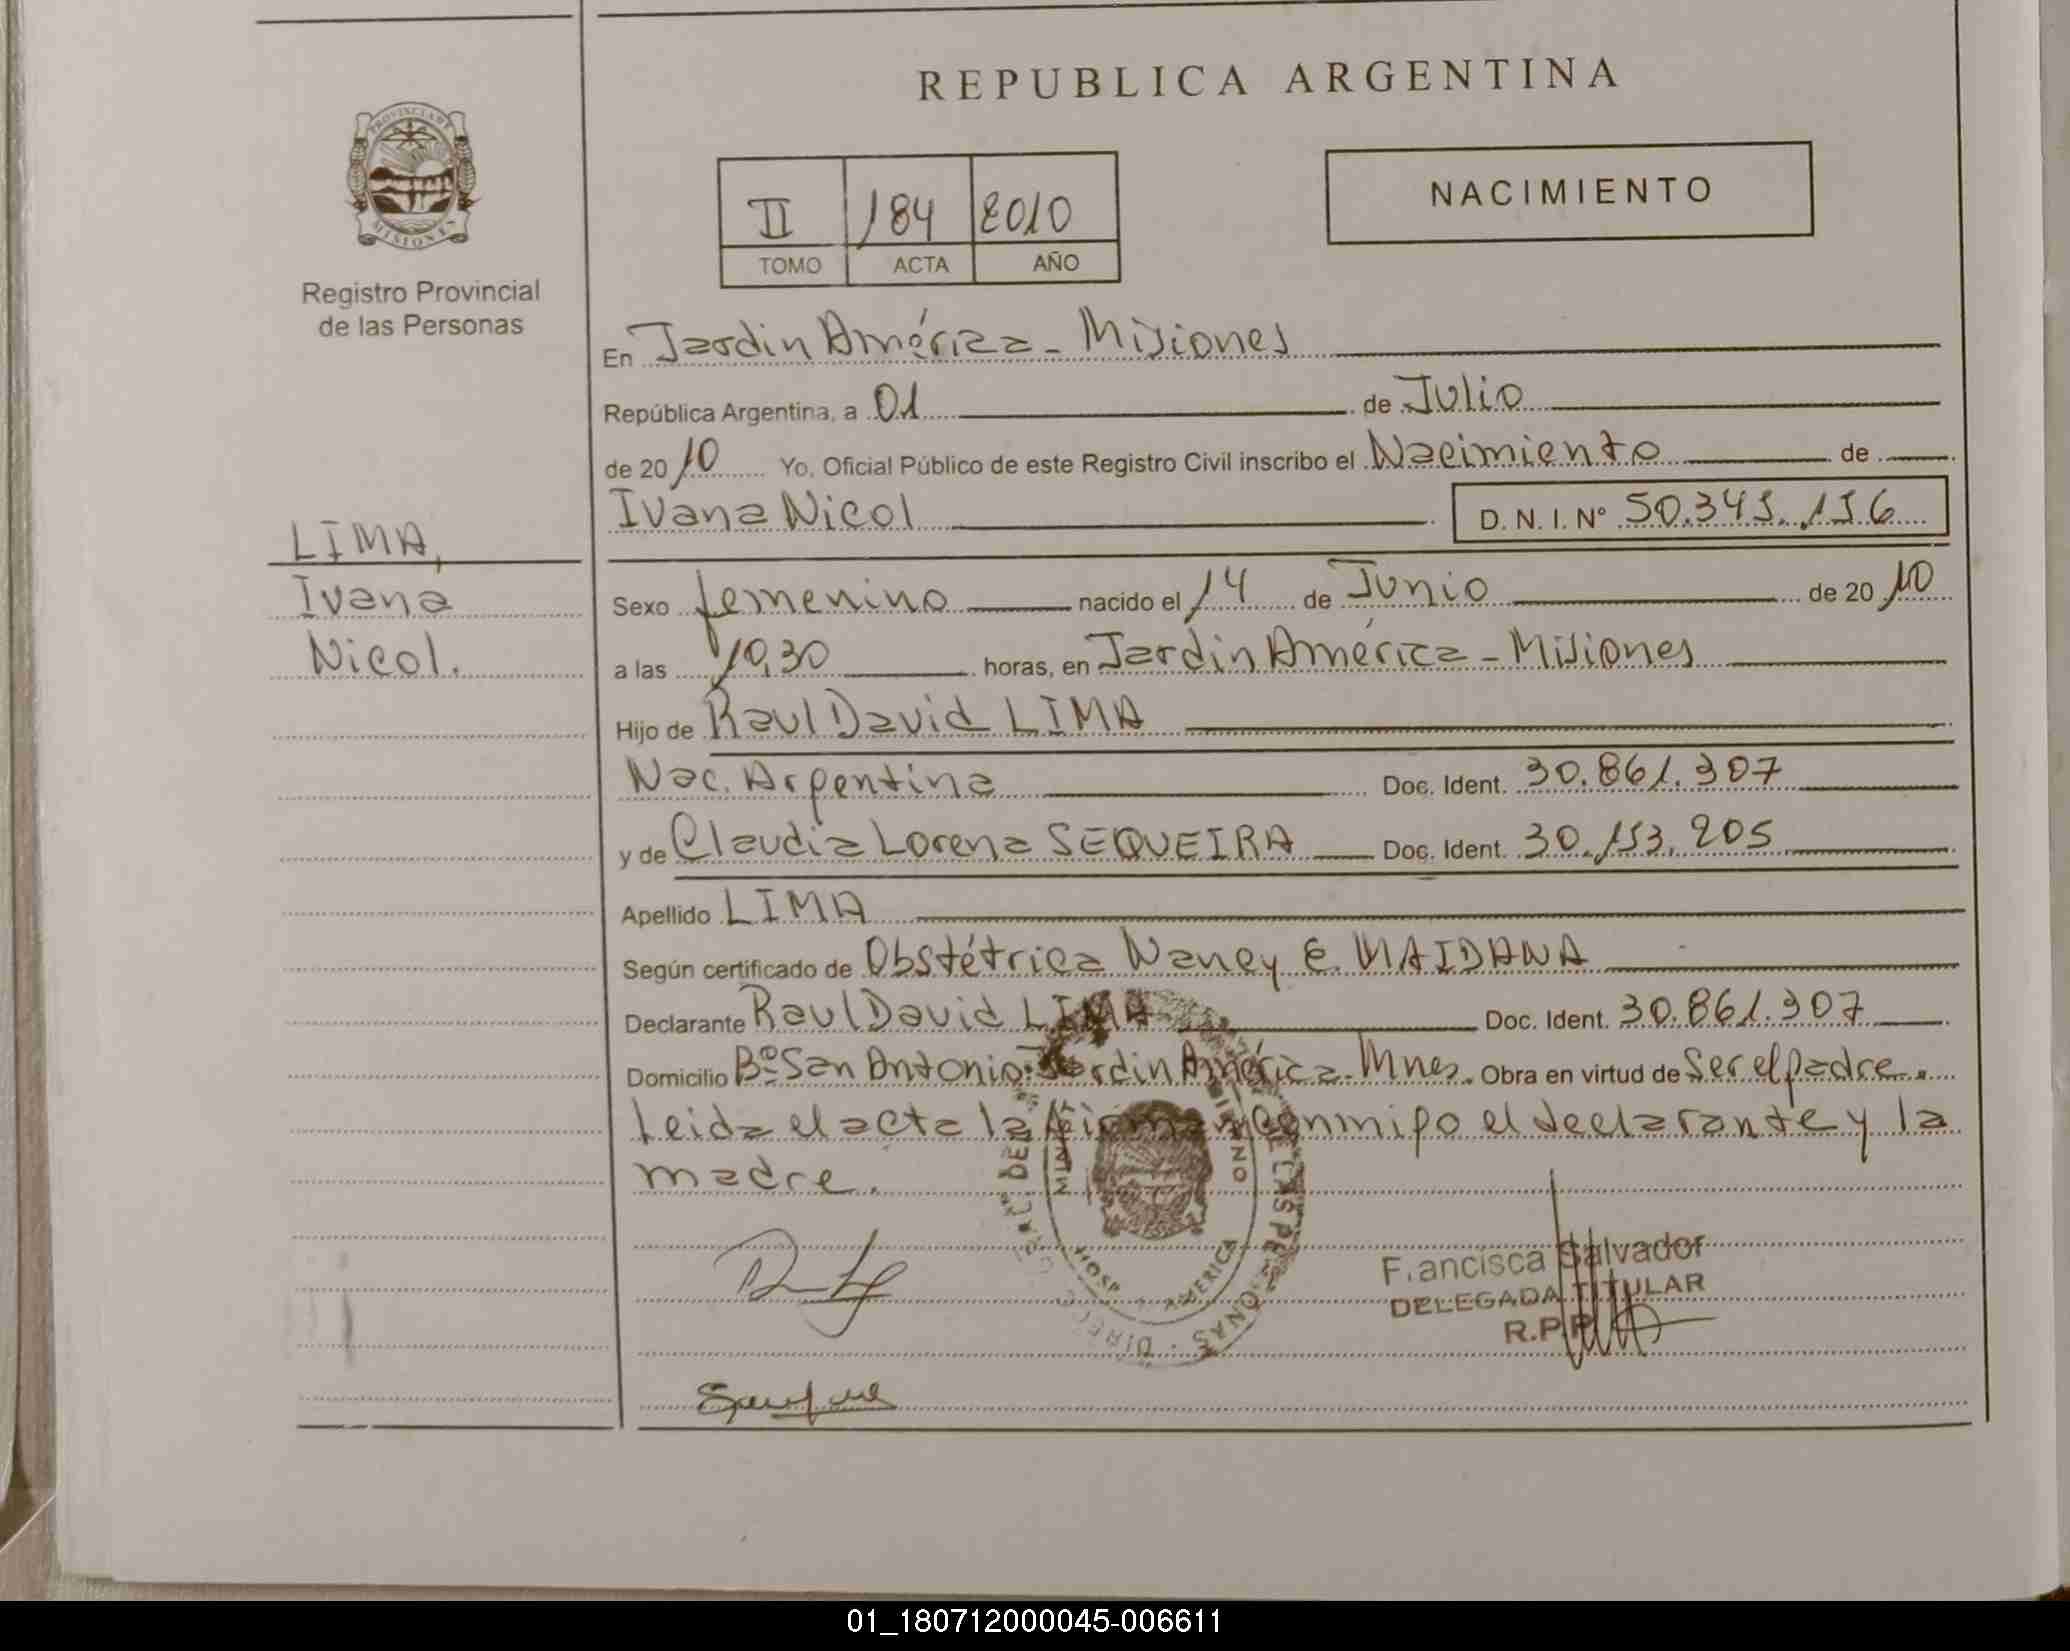 REPUBLICA ARGENTINA
PROVINCIA DE
MISIONES
Registro Provincial
de las Personas
NACIMIENTO
II 184 2010
TOMO ACTA AÑO
En Jardin América - Misiones
República Argentina, a 01 de Julio
de 2010 Yo, Oficial Público de este Registro Civil inscribo el Nacimiento de
Ivana Nicol D.N.I.Nº 50.345.156
LIMA,
Ivana
Nicol.
Sexo femenino nacido el 14 de Junio de 2010
a las 10,30 horas, en Jardin América - Misiones
Hijo de Raul David LIMA
Nac. Argentina Doc. Ident. 30.861.307
y de Claudia Lorena SEQUEIRA Doc. Ident. 30.153.205
Apellido LIMA
Según certificado de Obstétrica Nancy E. MAIDANA
Declarante Raul David LIMA Doc. Ident. 30.861.307
Domicilio Bº San Antonio-Jardin América-Mnes. Obra en virtud de Ser el padre.
Leida el acta la firman conmigo el declarante y la
madre.
Francisca Salvador
DELEGADA TITULAR
R.P.P.
01_180712000045-006611